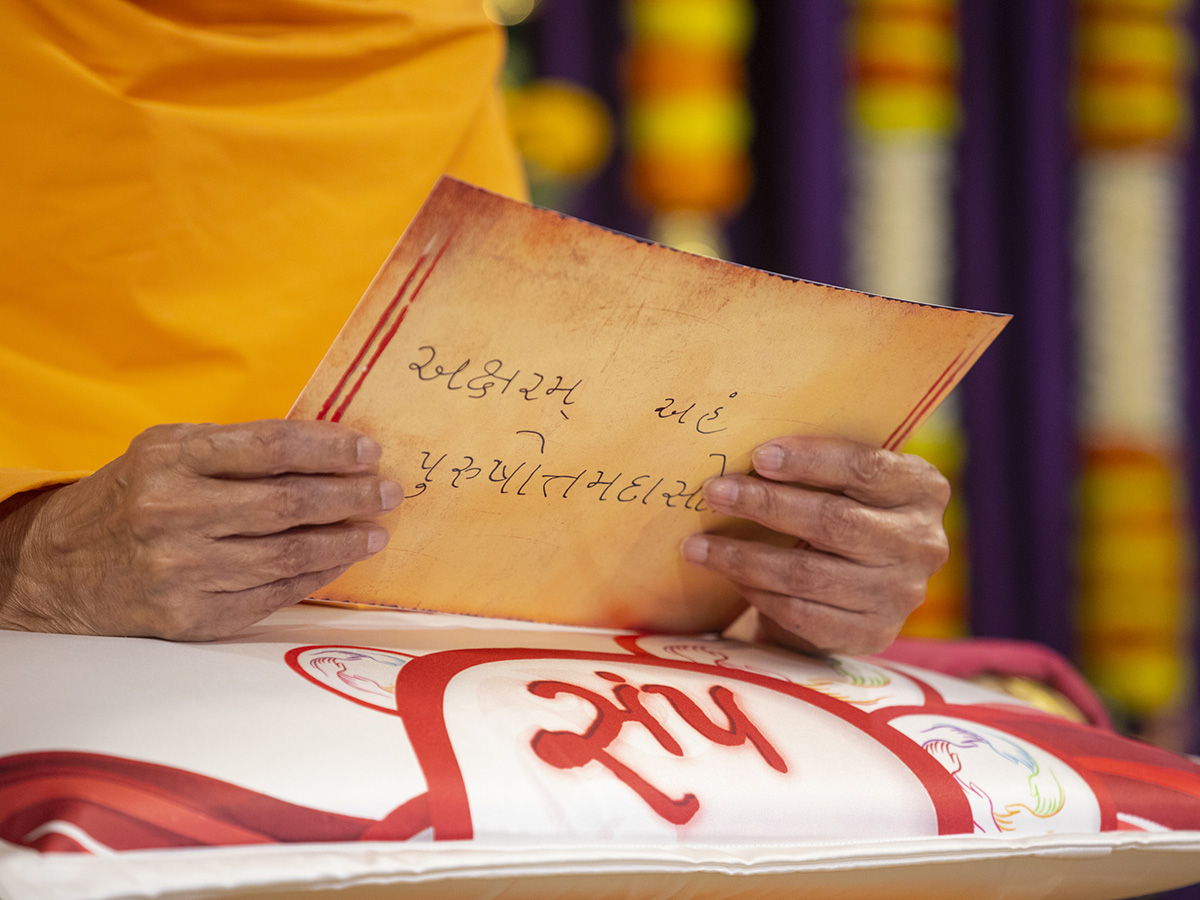 અક્ષરમ્ અહં
પુરુષોતમદાસો
સંપ